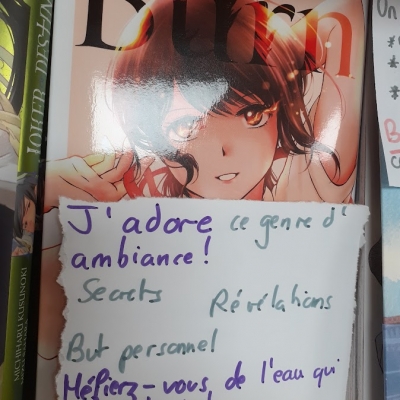 Burn
JOKER DESTIN
MICHIHARU KUSUNOKI
J'adore ce genre d'
ambiance !
Secrets Révélations
But personnel
Méfiez-vous, de l'eau qui